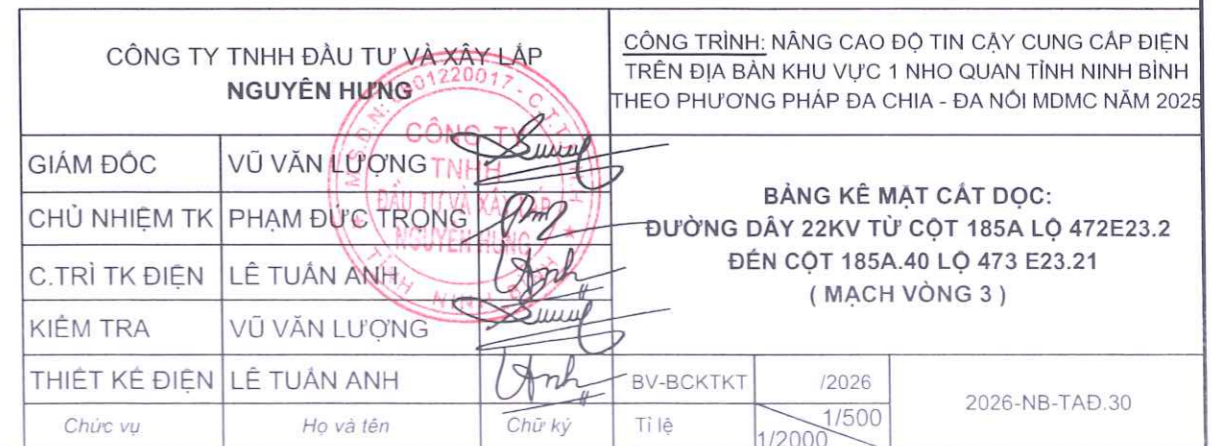 CÔNG TY TNHH ĐẦU TƯ VÀ XÂY LẮP
NGUYÊN HƯNG
CÔNG TRÌNH: NÂNG CAO ĐỘ TIN CẬY CUNG CẤP ĐIỆN
TRÊN ĐỊA BÀN KHU VỰC 1 NHO QUAN TỈNH NINH BÌNH
THEO PHƯƠNG PHÁP ĐA CHIA - ĐA NỐI MDMC NĂM 2025
GIÁM ĐỐC VŨ VĂN LƯỢNG
CHỦ NHIỆM TK PHẠM ĐỨC TRỌNG
C.TRÌ TK ĐIỆN LÊ TUẤN ANH
KIỂM TRA VŨ VĂN LƯỢNG
THIẾT KẾ ĐIỆN LÊ TUẤN ANH
Chức vụ Họ và tên Chữ ký
BẢNG KÊ MẶT CẮT DỌC:
ĐƯỜNG DÂY 22KV TỪ CỘT 185A LỘ 472E23.2
ĐẾN CỘT 185A.40 LỘ 473 E23.21
( MẠCH VÒNG 3 )
BV-BCKTKT /2026
Tỉ lệ 1/500
1/2000
2026-NB-TAĐ.30
CÔNG TY
TNHH
ĐẦU TƯ VÀ XÂY LẮP
NGUYÊN HƯNG